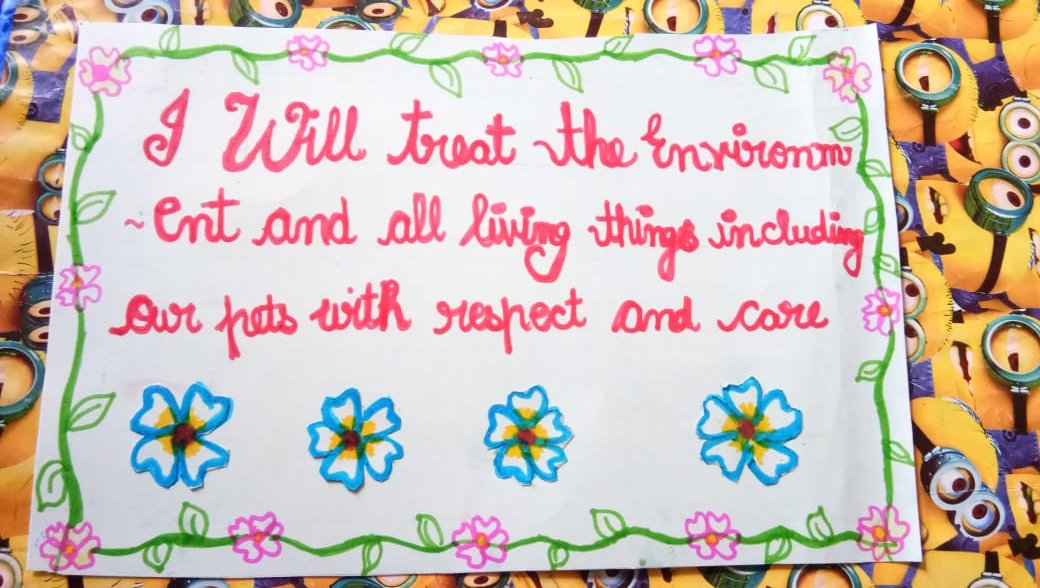 I Will treat the Environm
~ent and all living things including
our pets with respect and care